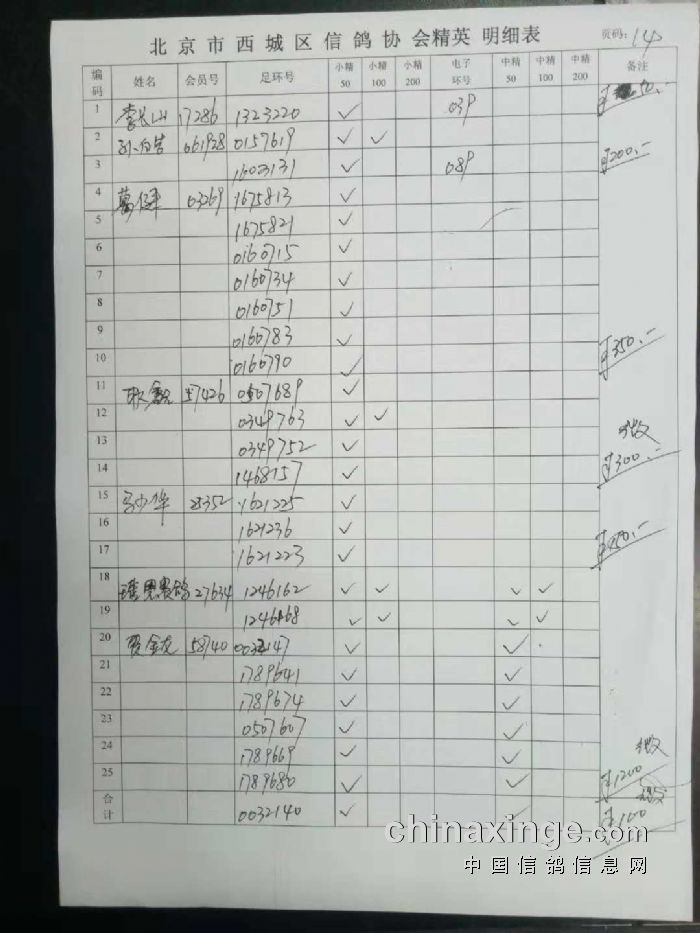 北京市西城区信鸽协会精英 明细表 页码: 14
编码 姓名 会员号 足环号 小精50 小精100 小精200 电子环号 中精50 中精100 中精200 备注
1 李长山 17286 1323220 ✓ 039 50.-
2 061928 0157619 ✓ ✓
3 1603131 ✓ 089 ¥200.-
4 03269 1675813 ✓
5 1675821 ✓
6 0160715 ✓
7 0160734 ✓
8 0160751 ✓
9 0160783 ✓
10 0160790 ✓ ¥350.-
11 57426 0507689 ✓
12 0349763 ✓ ✓
13 0349752 ✓
14 1468157 ✓ ¥300.-
15 马少华 25352 1621225 ✓
16 1621236 ✓
17 1621223 ✓
18 27634 1246162 ✓ ✓ ✓ ✓
19 ✓ ✓ ✓ ✓
20 贾金友 58740 ✓ ✓
21 1789641 ✓ ✓
22 1789674 ✓ ✓
23 0507607 ✓ ✓
24 1789669 ✓ ✓
25 1789680 ✓ ✓ ¥1200
合计 0032140 ✓ ✓ ¥100
chinaxinge.com
中国信鸽信息网